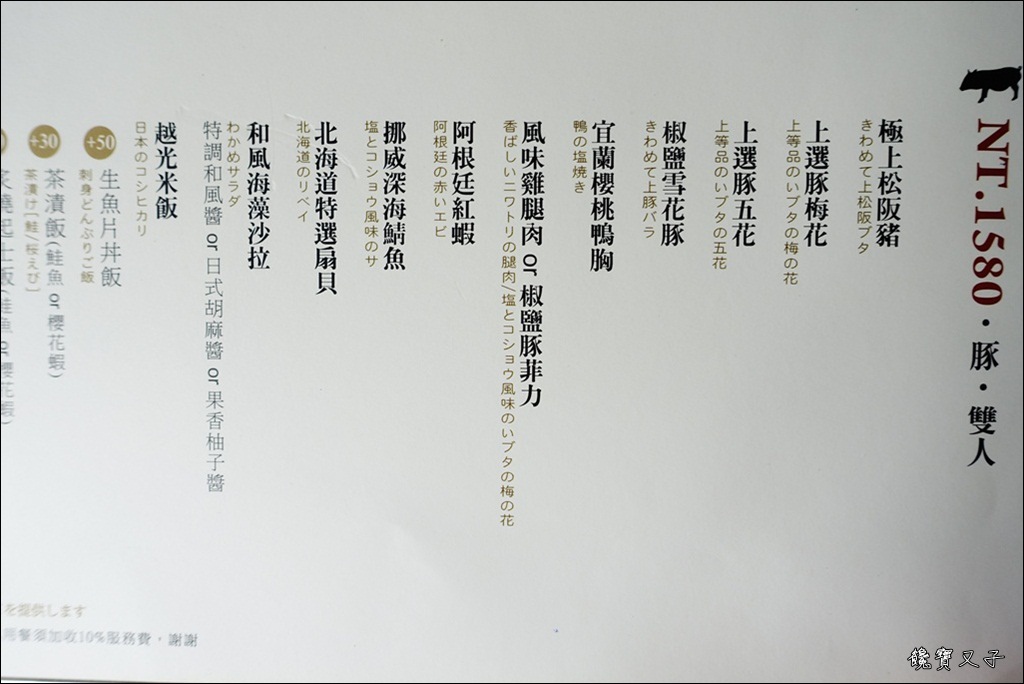 NT.1580・豚・雙人
極上松阪豬
きわめて上松阪ブタ
上選豚梅花
上等品のいブタの梅の花
上選豚五花
上等品のいブタの五花
椒鹽雪花豚
きわめて上豚バラ
宜蘭櫻桃鴨胸
鴨の塩焼き
風味雞腿肉 or 椒鹽豚菲力
香ばしいニワトリの腿肉/塩とコショウ風味のいブタの梅の花
阿根廷紅蝦
阿根廷の赤いエビ
挪威深海鯖魚
塩とコショウ風味のサ
北海道特選扇貝
北海道のリベイ
和風海藻沙拉
わかめサラダ
特調和風醬 or 日式胡麻醬 or 果香柚子醬
越光米飯
日本のコシヒカリ
+50 生魚片丼飯
刺身どんぶりご飯
+30 茶漬飯(鮭魚 or 櫻花蝦)
茶漬け[鮭/桜えび]
燒起士飯(鮭魚 or 櫻花蝦)
を提供します
用餐須加收10%服務費，謝謝
饞寶又子